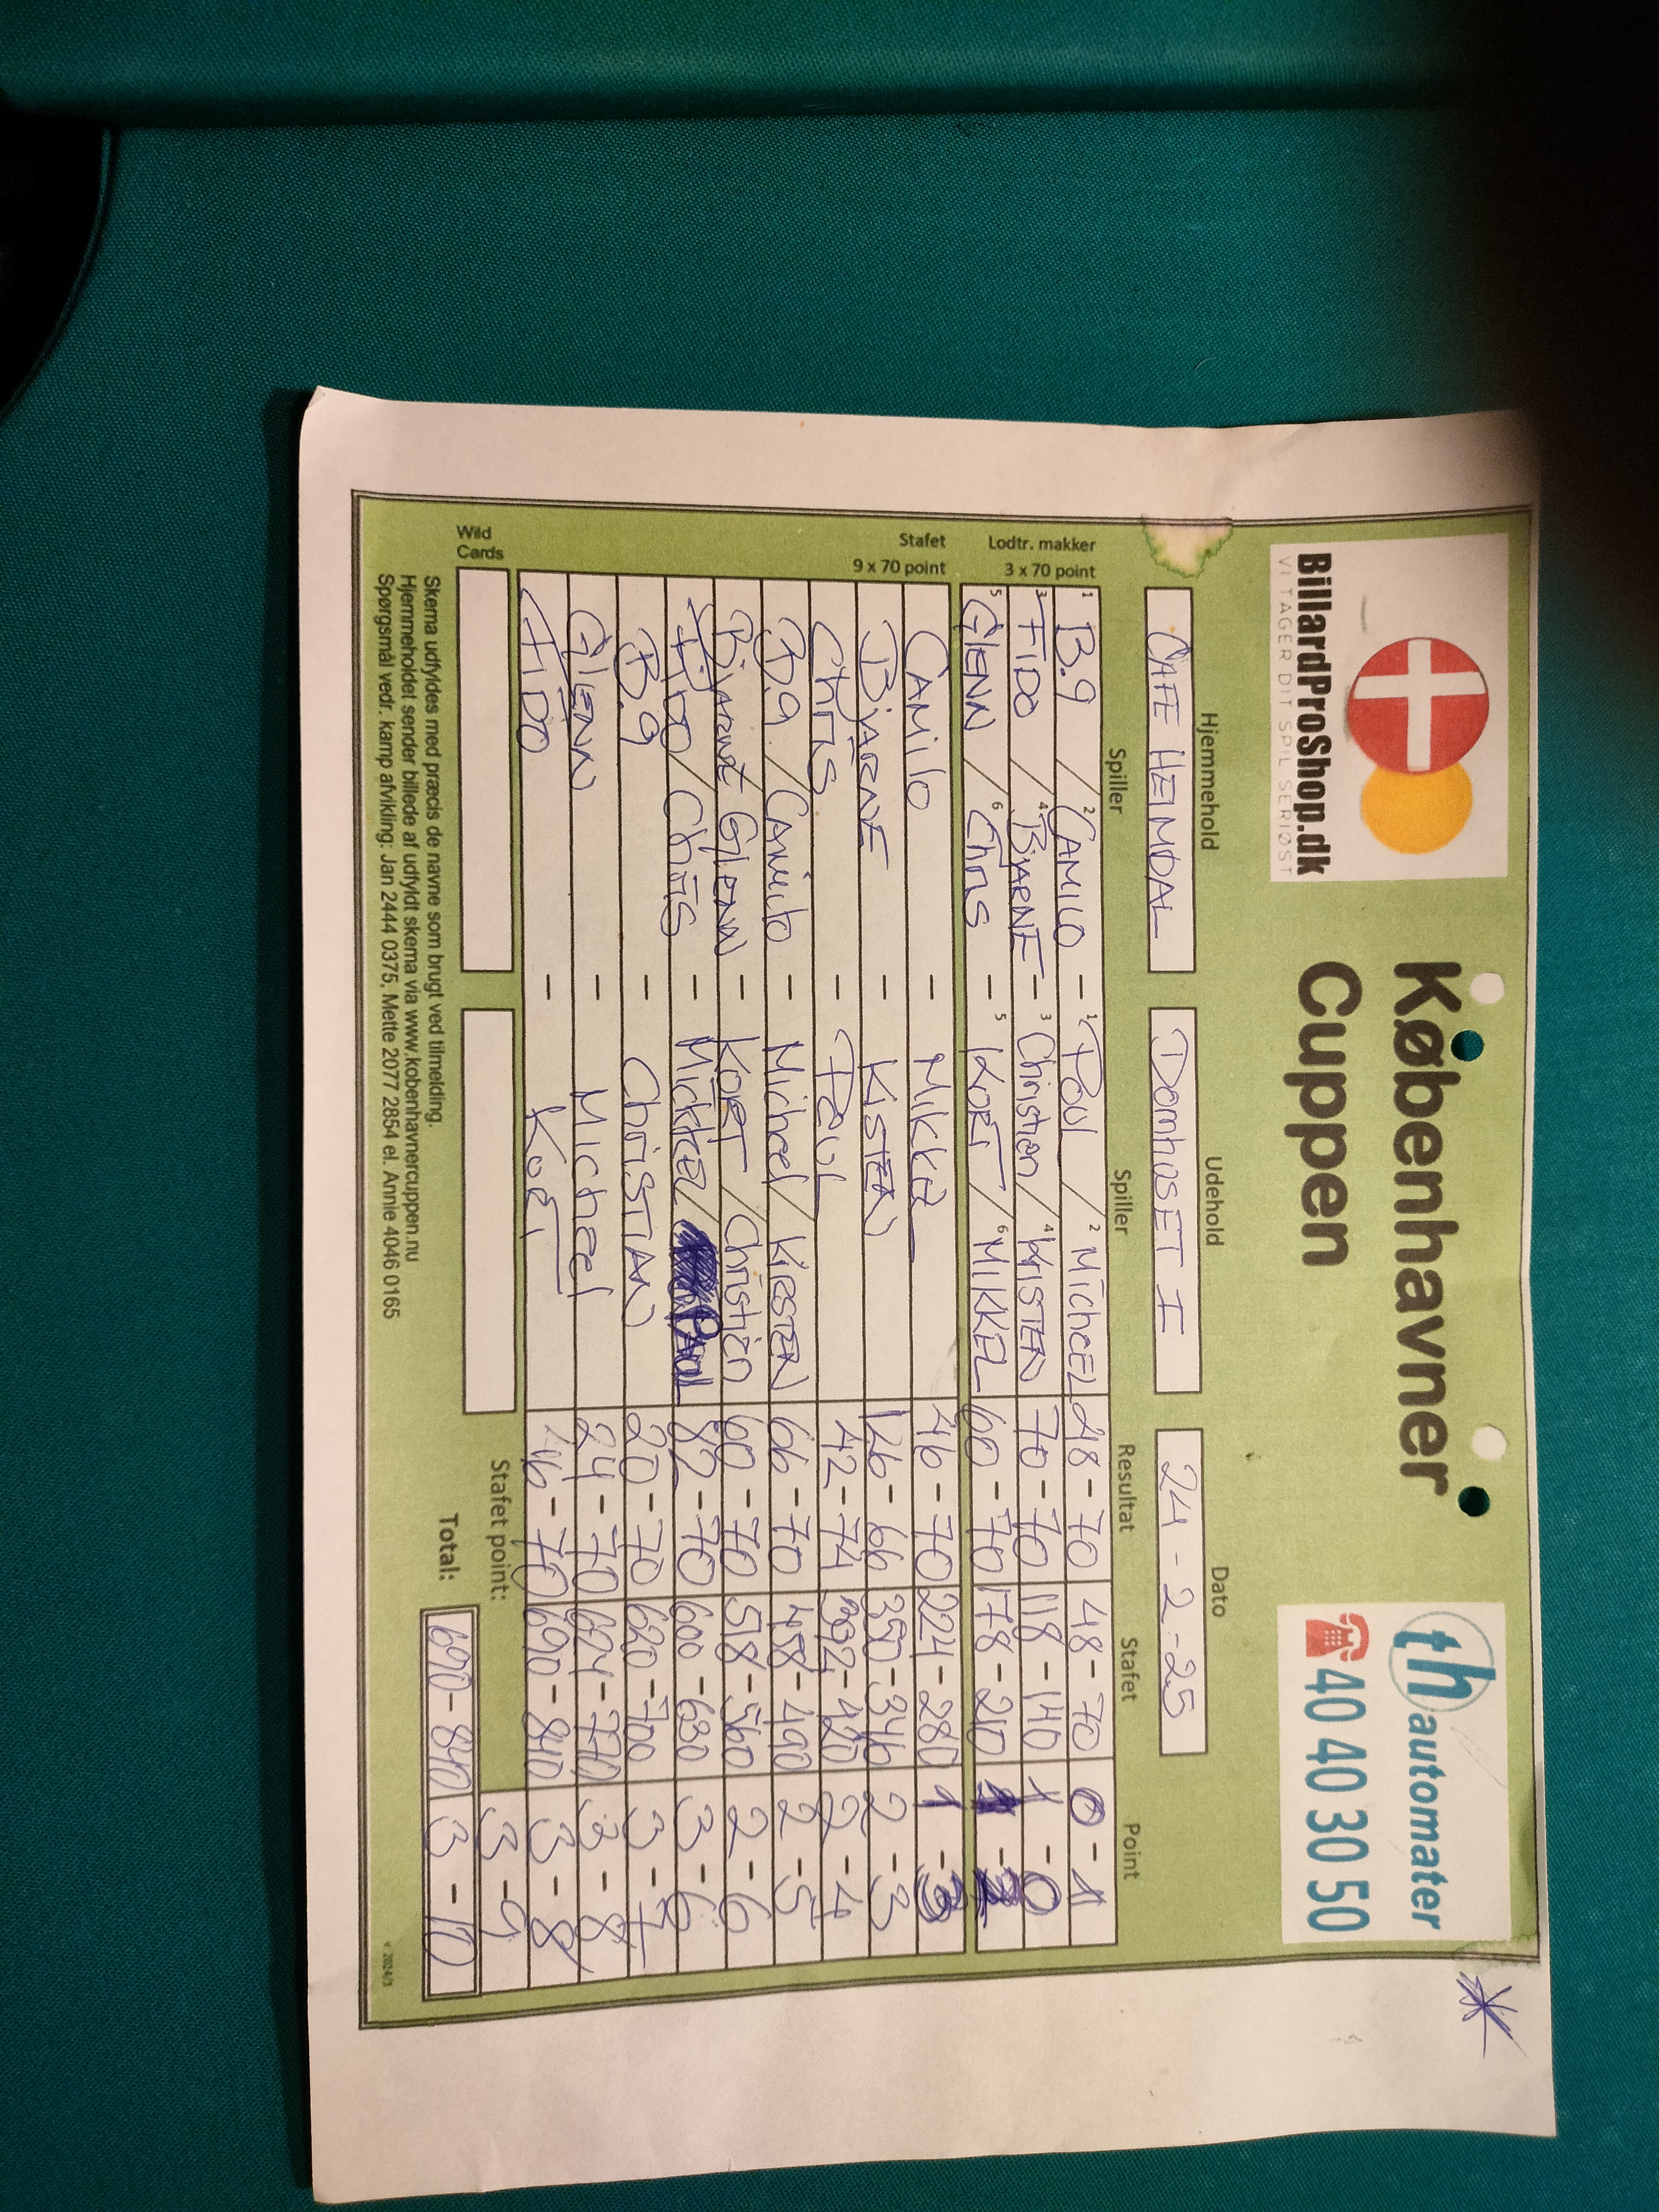 BillardProShop.dk
VI TAGER DIT SPIL SERIØST
Københavner
Cuppen
th automater
40 40 30 50
Hjemmehold Udehold Dato
CAFE HEIMDAL DomhusET I 24-2-25
Spiller Spiller Resultat Stafet Point
Lodtr. makker
3 x 70 point
1 B.9 / 2 CAMILO - 1 Poul / 2 Michael 48-70 48-70 0-1
3 FIDO / 4 BJARNE - 3 Christian / 4 KISTEN 70-70 118-140 1-0
5 GLENN / 6 Chris - 5 KORT / 6 MIKKEL 60-70 178-210
Stafet
9 x 70 point
CAMilo - MIKKEL 46-70 224-280 1-3
BJARNE - KiSTEN 126-66 350-346 2-3
Chris - 42-74 392-420 2-4
B.9 / CAMilo - Michael / KiRSTEN 66-70 458-490 2-5
BJARNE GLENN - KORT / Christian 60-70 518-560 2-6
FIDO / Chris - MIKKEL / 82-70 600-630 3-6
B.9 - ChriSTIAN 20-70 620-700 3-7
GLENN - Michael 24-70 3-8
FIDO - KORT 46-70 690-840 3-8
Stafet point: 3-9
Total: 690-840 3-10
Wild
Cards
Skema udfyldes med præcis de navne som brugt ved tilmelding.
Hjemmeholdet sender billede af udfyldt skema via www.kobenhavnercuppen.nu
Spørgsmål vedr. kamp afvikling: Jan 2444 0375, Mette 2077 2854 el. Annie 4046 0165
v 2024/3